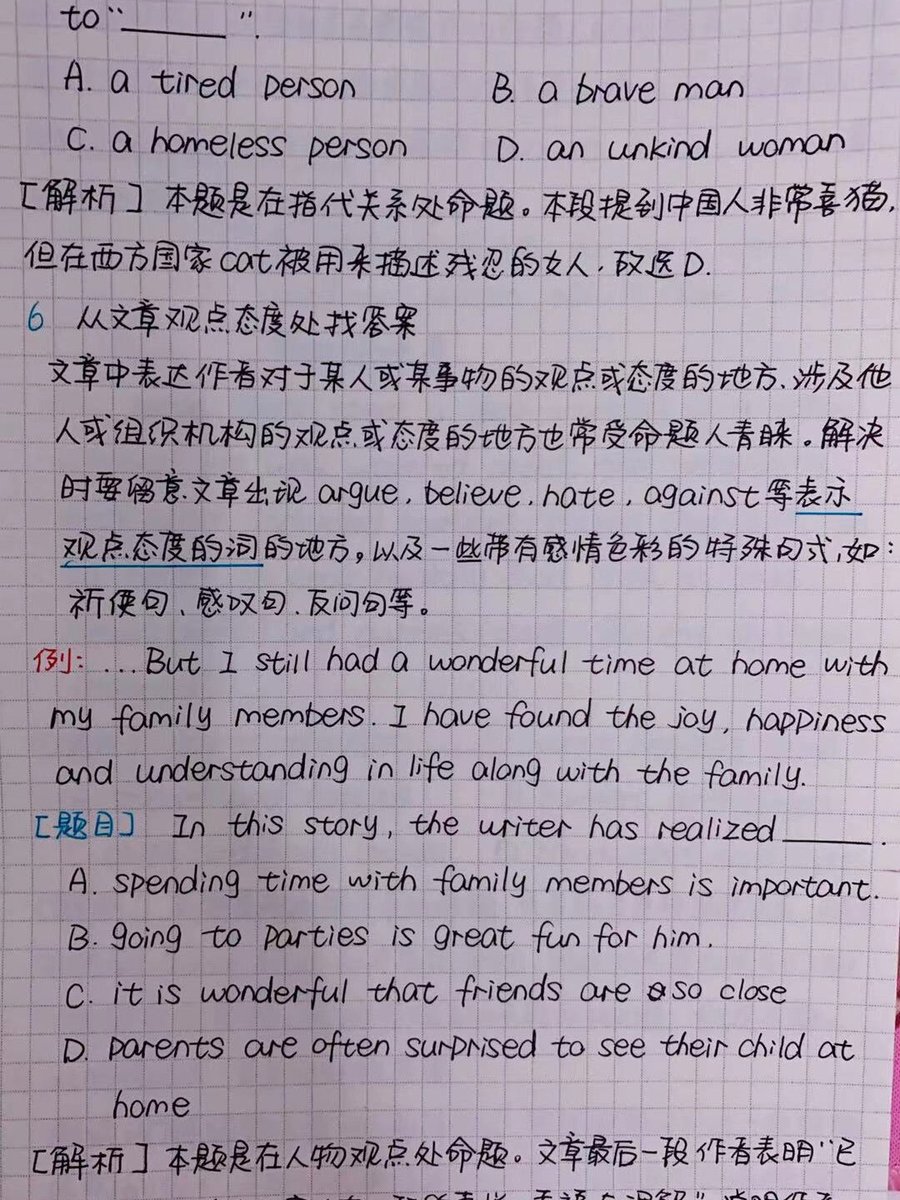 to“______”.
A. a tired person B. a brave man
C. a homeless person D. an unkind woman
[解析] 本题是在指代关系处命题。本段提到中国人非常喜猫,
但在西方国家cat被用来描述残忍的女人,故选D.
6 从文章观点态度处找答案
文章中表达作者对于某人或某事物的观点或态度的地方、涉及他
人或组织机构的观点或态度的地方也常受命题人青睐。解决
时要留意文章出现 argue, believe, hate, against等表示
观点态度的词的地方,以及一些带有感情色彩的特殊句式,如:
祈使句、感叹句、反问句等。
例: ...But I still had a wonderful time at home with
my family members. I have found the joy, happiness
and understanding in life along with the family.
[题目] In this story, the writer has realized ______.
A. spending time with family members is important.
B. going to parties is great fun for him.
C. it is wonderful that friends are so close
D. parents are often surprised to see their child at
home
[解析] 本题是在人物观点处命题。文章最后一段作者表明“已